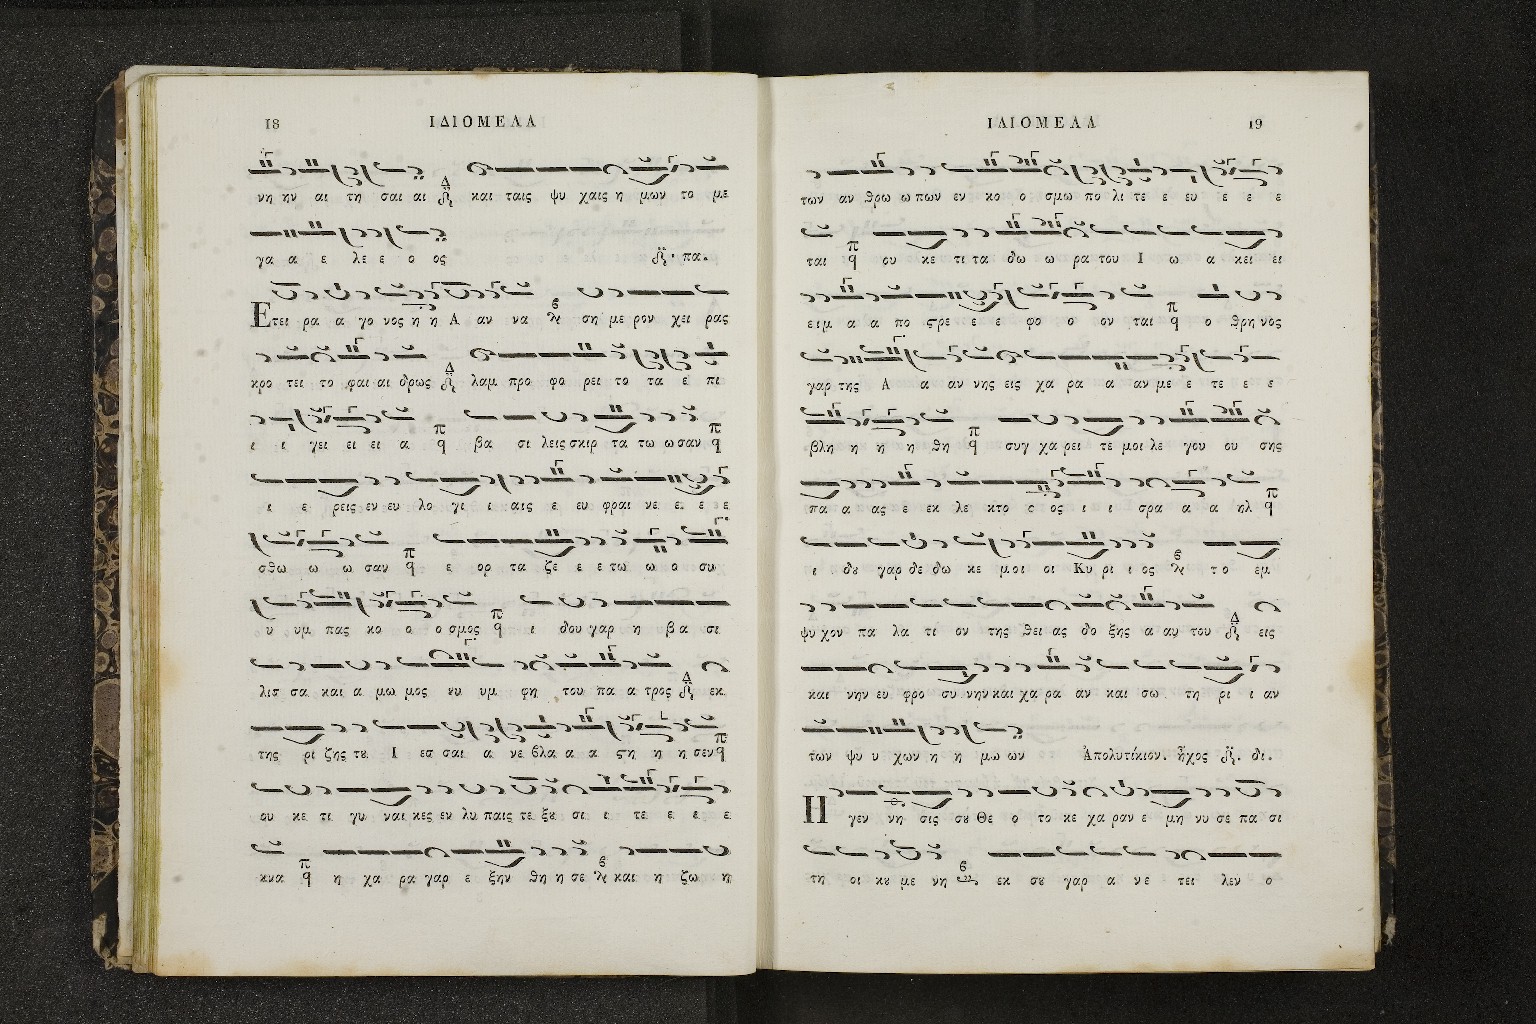 18 ΙΔΙΟΜΕΛΑ
νη ην αι τη σαι αι και ταις ψυ χαις η μων το με
γα α ε λε ε ο ος πα.
Ετει ρα α γο νος η η Α αν να ση με ρον χει ρας
κρο τει το φαι αι δρως λαμ προ φο ρει το τα ε πι
ι ι γει ει ει α βα σι λεις σκιρ τα τω ω σαν
ι ε ρεις εν ευ λο γι ι αις ε ευ φραι νε ε ε ε
σθω ω ω σαν ε ορ τα ζε ε ε τω ω ο συ
υ υμ πας κο ο ο σμος ι δου γαρ η βα σι
λισ σα και α μω μος νυ υμ φη του πα α τρος εκ
της ρι ζης τȣ Ι εσ σαι α νε βλα α α ϛη η η σεν
ου κε τι γυ ναι κες εν λυ παις τε ξȣ σι ι τε ε ε ε
κνα η χα ρα γαρ ε ξην θη η σε και η ζω η
ΙΔΙΟΜΕΛΑ 19
των αν θρω ω πων εν κο ο σμω πο λι τε ε ευ ε ε ε
ται ου κε τι τα δω ω ρα του Ι ω α κει ει
ειμ α α πο ϛρε ε ε φο ο ον ται ο θρη νος
γαρ της Α α αν νης εις χα ρα α αν με ε τε ε ε
βλη η η η θη συγ χα ρει τε μοι λε γου ου σης
πα α ας ε εκ λε κτο ο ος ι ι σρα α α ηλ
ι δȣ γαρ δε δω κε μοι οι Κυ ρι ι ος το εμ
ψυ χον πα λα τι ον της θει ας δο ξης α αυ του εις
και νην ευ φρο συ νην και χα ρα αν και σω τη ρι ι αν
των ψυ υ χων η η μω ων Ἀπολυτίκιον. ἦχος δι.
Η γεν νη σις σȣ Θε ο το κε χα ραν ε μη νυ σε πα σι
τη οι κȣ με νη εκ σȣ γαρ α νε τει λεν ο